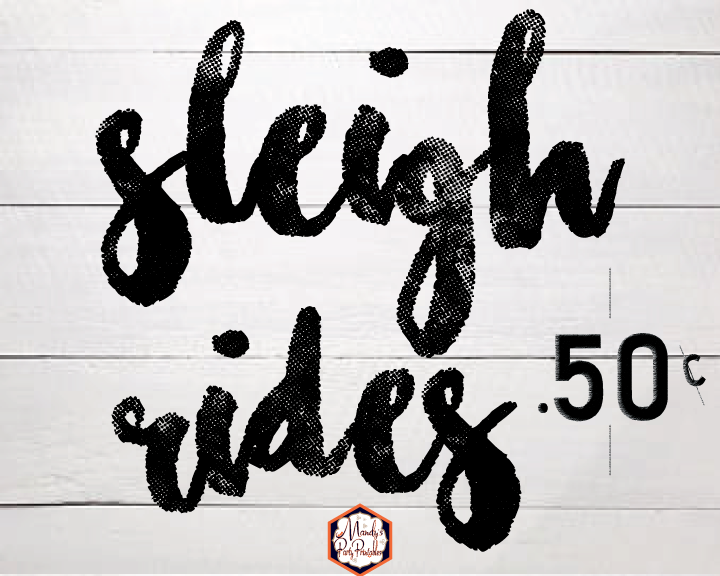 sleigh
rides
.50¢
Mandy's
Party Printables